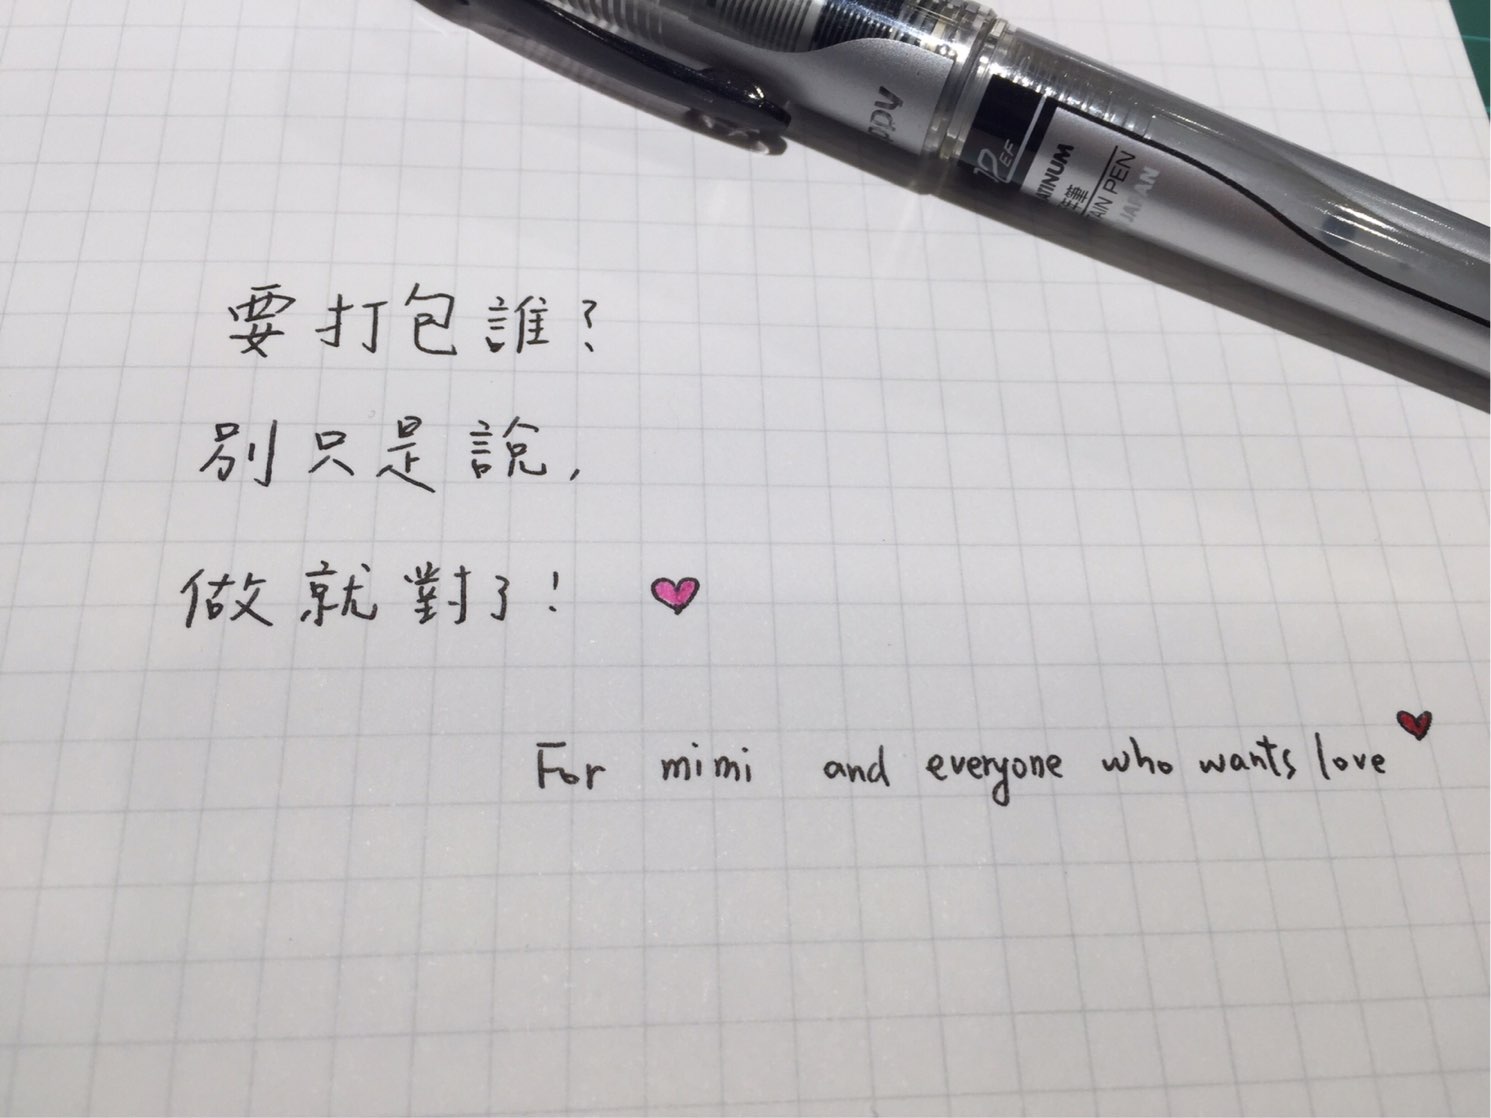 ppy
EF
ATINUM
年筆
AIN PEN
JAPAN
要打包誰?
別只是說,
做就對了!
For mimi and everyone who wants love